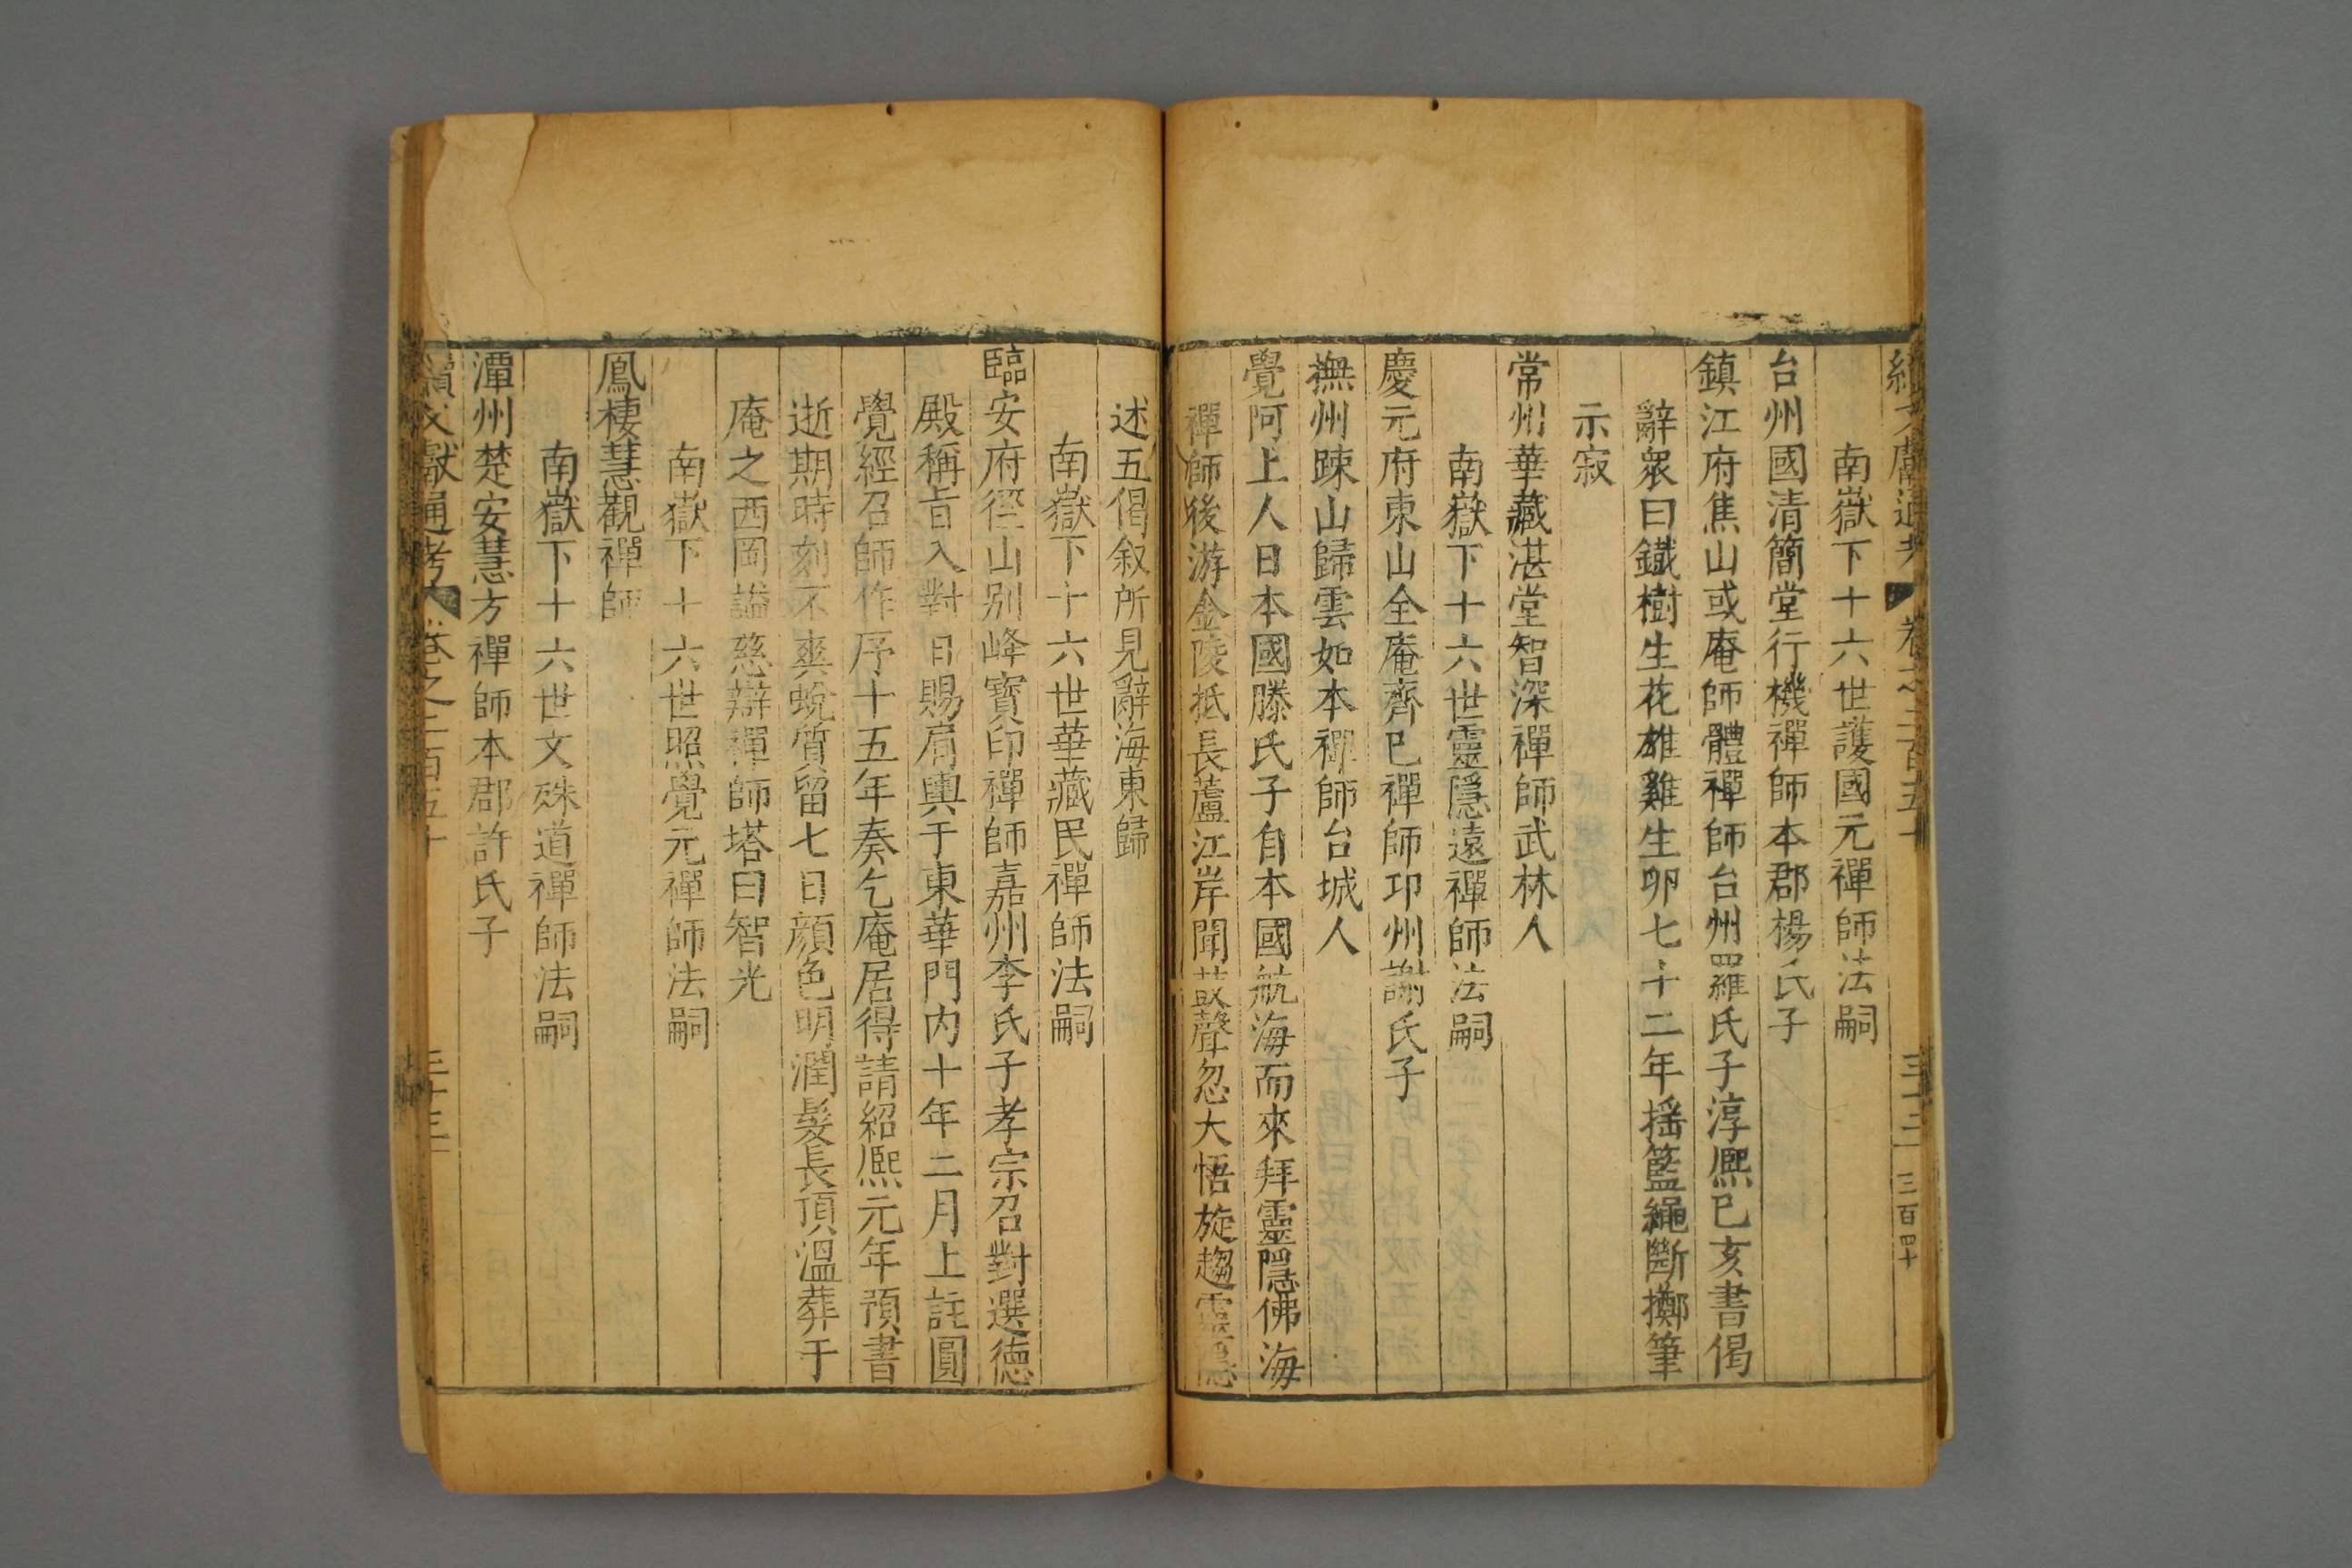 文獻通考 卷之二百五十 三十三 三百四十
南嶽下十六世護國元禪師法嗣
台州國清簡堂行機禪師本郡楊氏子
鎮江府焦山或庵師體禪師台州羅氏子淳熈巳亥書偈
辭衆曰鐵樹生花雄雞生卵七十二年搖籃繩斷擲筆
示寂
常州華藏湛堂智深禪師武林人
南嶽下十六世靈隱遠禪師法嗣
慶元府東山全庵齊巳禪師卭州謝氏子
撫州踈山歸雲如本禪師台城人
覺阿上人日本國滕氏子自本國航海而來拜靈隱佛海
禪師後游金陵抵長蘆江岸聞鼓聲忽大悟旋趨靈隱
述五偈叙所見辭海東歸
南嶽下十六世華藏民禪師法嗣
臨安府徑山别峰寶印禪師嘉州李氏子孝宗召對選德
殿稱旨入對日賜肩輿于東華門内十年二月上註圓
覺經召師作序十五年奏乞庵居得請紹熈元年預書
逝期時刻不爽蛻質留七日顔色明潤髮長頂溫葬于
庵之西岡謚慈辯禪師塔曰智光
南嶽下十六世照覺元禪師法嗣
鳳棲慧觀禪師
南嶽下十六世文殊道禪師法嗣
潭州楚安慧方禪師本郡許氏子
續文獻通考 卷之二百五十 三十三